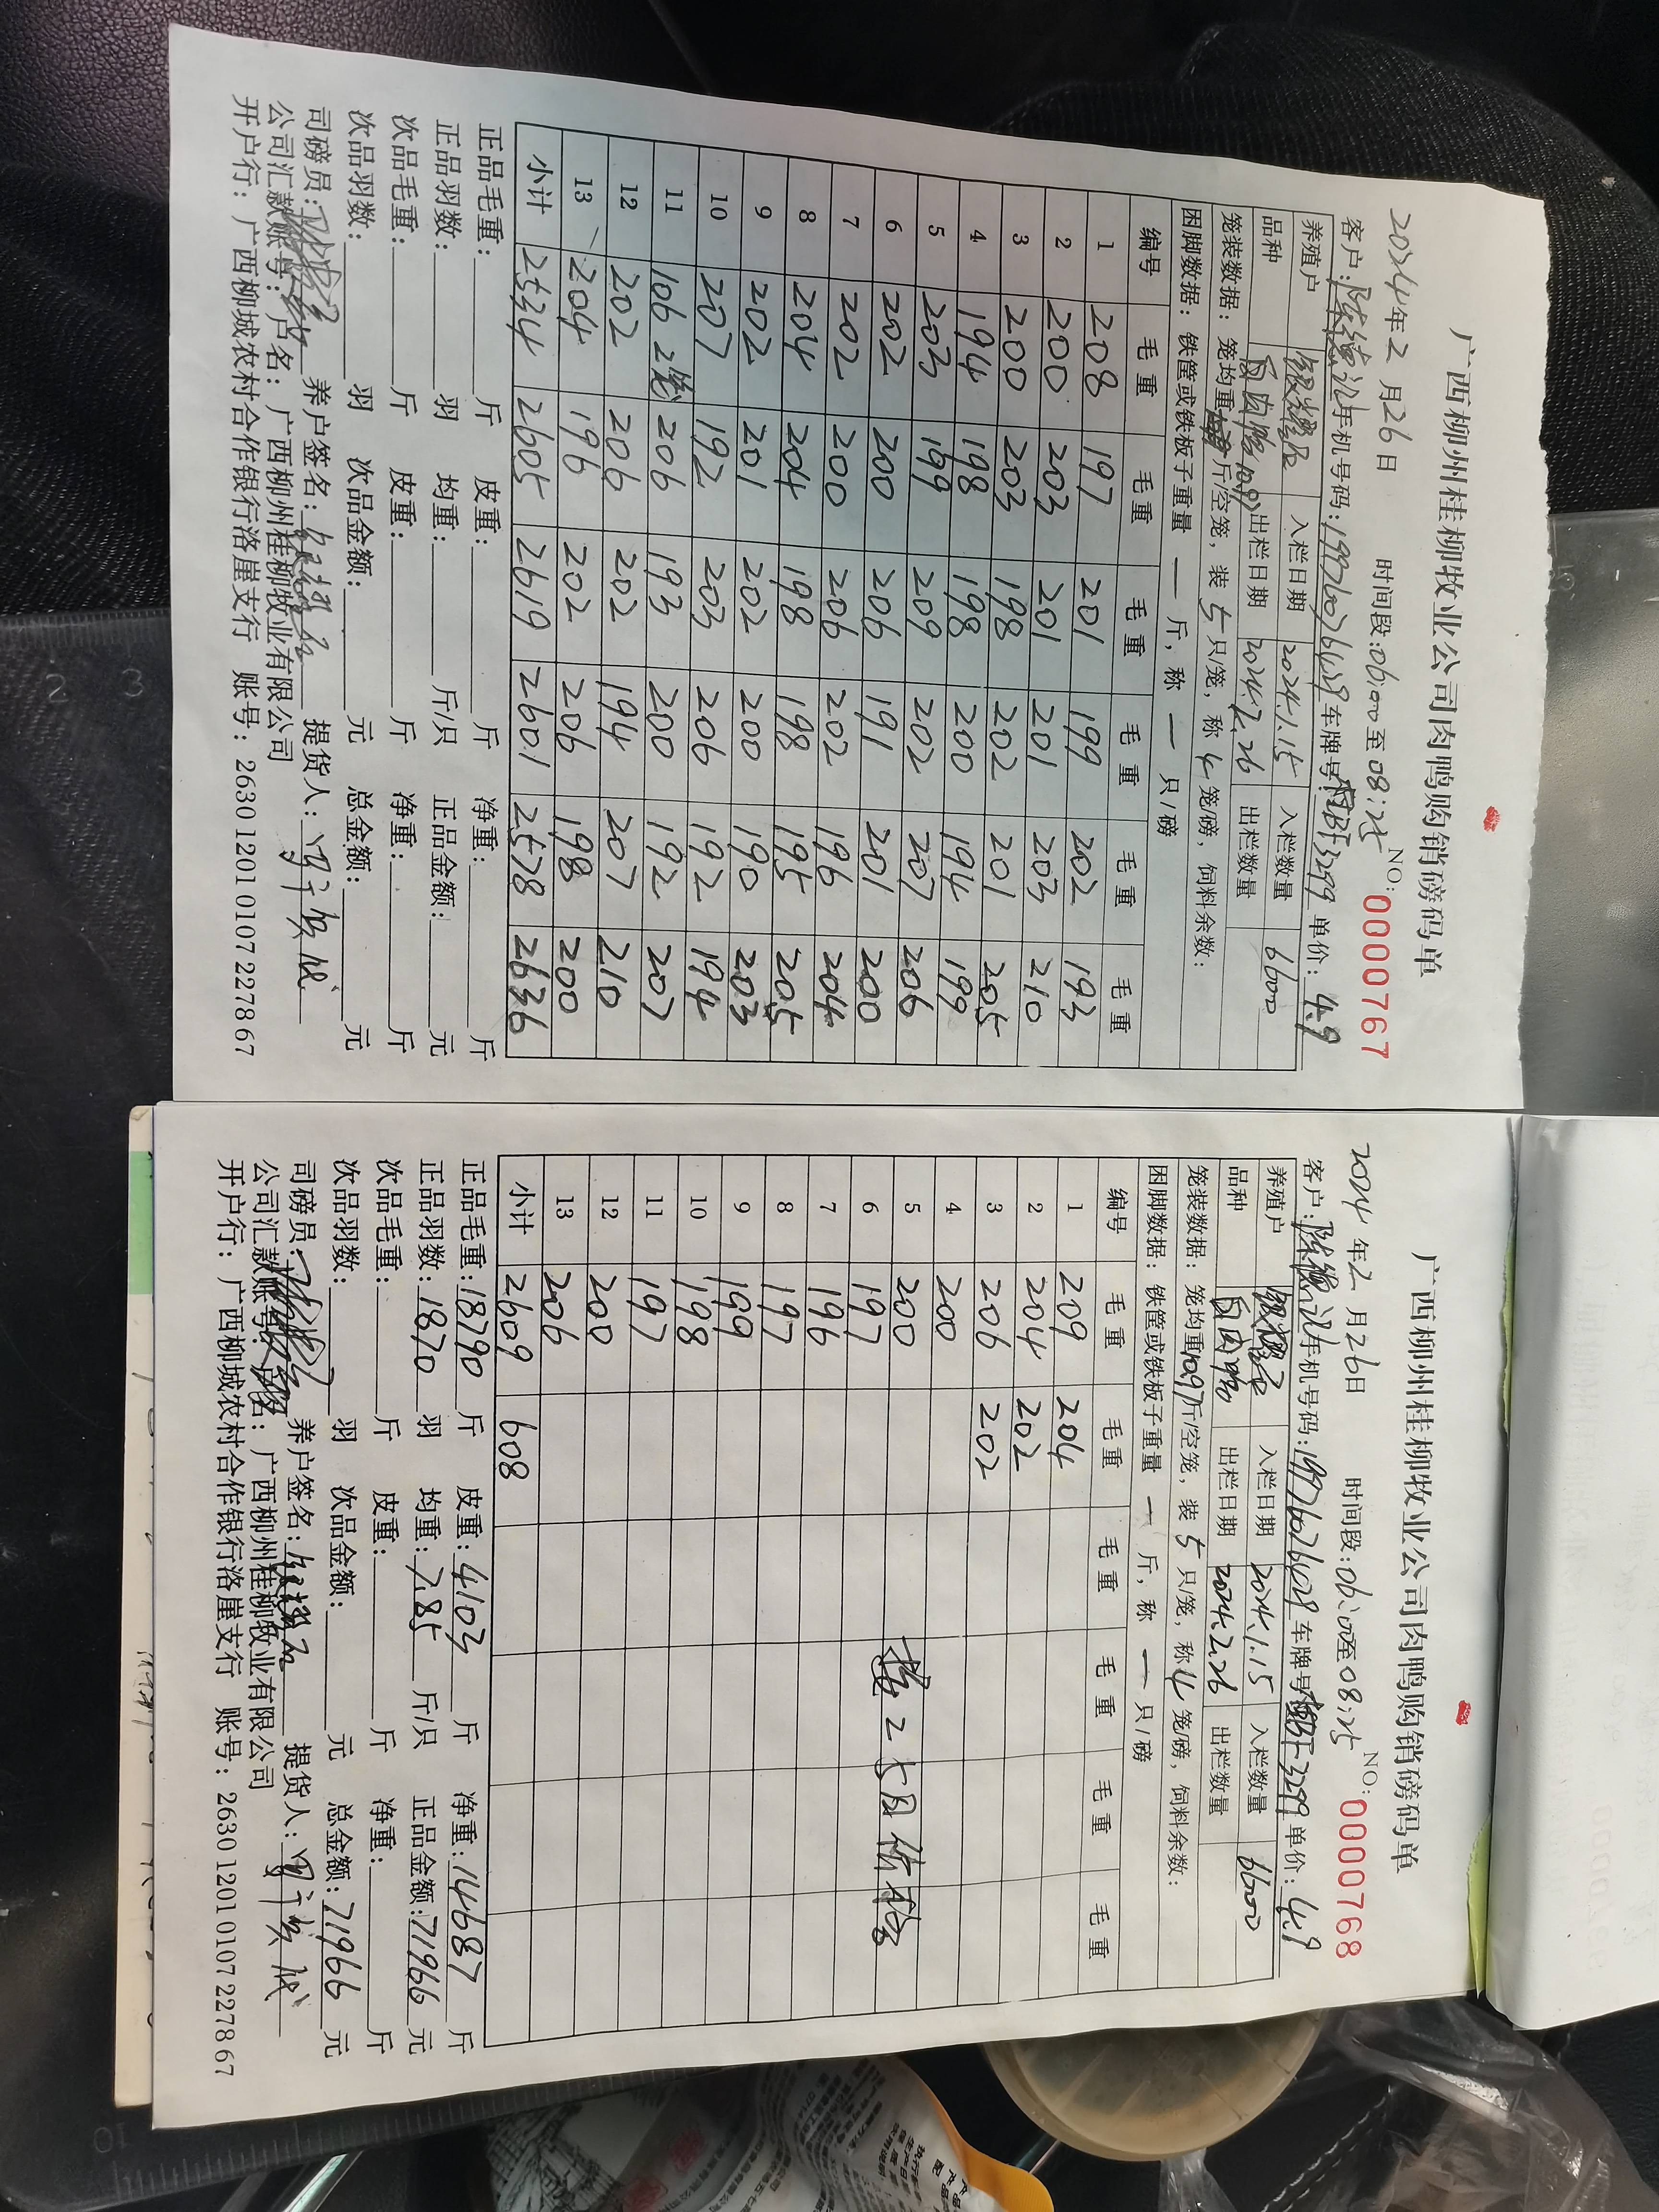 广西柳州桂柳牧业公司肉鸭购销磅码单
NO: 00000767
2024年2月26日 时间段:06:00至08:25
客户: 手机号码:19976026429 车牌号: 3299 单价:4.9
养殖户 入栏日期 2024.1.15 入栏数量 6600
品种 白肉鸭 出栏日期 2024.2.26 出栏数量
笼装数据:笼均重10.97斤/空笼,装5只/笼,称4笼/磅,饲料余数:
困脚数据:铁筐或铁板子重量 — 斤,称 — 只/磅
编号 毛重 毛重 毛重 毛重 毛重 毛重
1 208 197 201 199 202 193
2 200 203 201 201 203 210
3 200 203 198 202 201 205
4 194 198 198 200 194 199
5 203 199 209 202 207 206
6 202 200 206 191 201 200
7 202 200 206 202 196 204
8 204 204 198 198 195 205
9 202 201 202 200 190 203
10 207 192 203 206 192 194
11 106 2笼 206 193 200 192 207
12 202 206 202 194 207 210
13 204 196 202 206 198 200
小计 2534 2605 2619 2601 2578 2636
正品毛重: 斤 皮重: 斤 净重: 斤
正品羽数: 羽 均重: 斤/只 正品金额: 元
次品毛重: 斤 皮重: 斤 净重: 斤
次品羽数: 羽 次品金额: 元 总金额: 元
司磅员: 养户签名: 提货人:
公司汇款账号:户名:广西柳州桂柳牧业有限公司
开户行:广西柳城农村合作银行洛崖支行 账号:2630 1201 0107 2278 67
广西柳州桂柳牧业公司肉鸭购销磅码单
NO: 00000768
2024年2月26日 时间段:06:00至08:25
客户: 手机号码:19976026429 车牌号: 3299 单价:4.9
养殖户 入栏日期 2024.1.15 入栏数量 6600
品种 白肉鸭 出栏日期 2024.2.26 出栏数量
笼装数据:笼均重10.97斤/空笼,装5只/笼,称4笼/磅,饲料余数:
困脚数据:铁筐或铁板子重量 — 斤,称 — 只/磅
编号 毛重 毛重 毛重 毛重 毛重 毛重
1 209 204
2 204 202
3 206 202
4 200
5 200 按25日价格
6 197
7 196
8 197
9 199
10 198
11 197
12 200
13 206
小计 2609 608
正品毛重:18790斤 皮重:4103斤 净重:14687斤
正品羽数:1870羽 均重:7.85斤/只 正品金额:71966元
次品毛重: 斤 皮重: 斤 净重: 斤
次品羽数: 羽 次品金额: 元 总金额:71966元
司磅员: 养户签名: 提货人:
公司汇款账号:户名:广西柳州桂柳牧业有限公司
开户行:广西柳城农村合作银行洛崖支行 账号:2630 1201 0107 2278 67